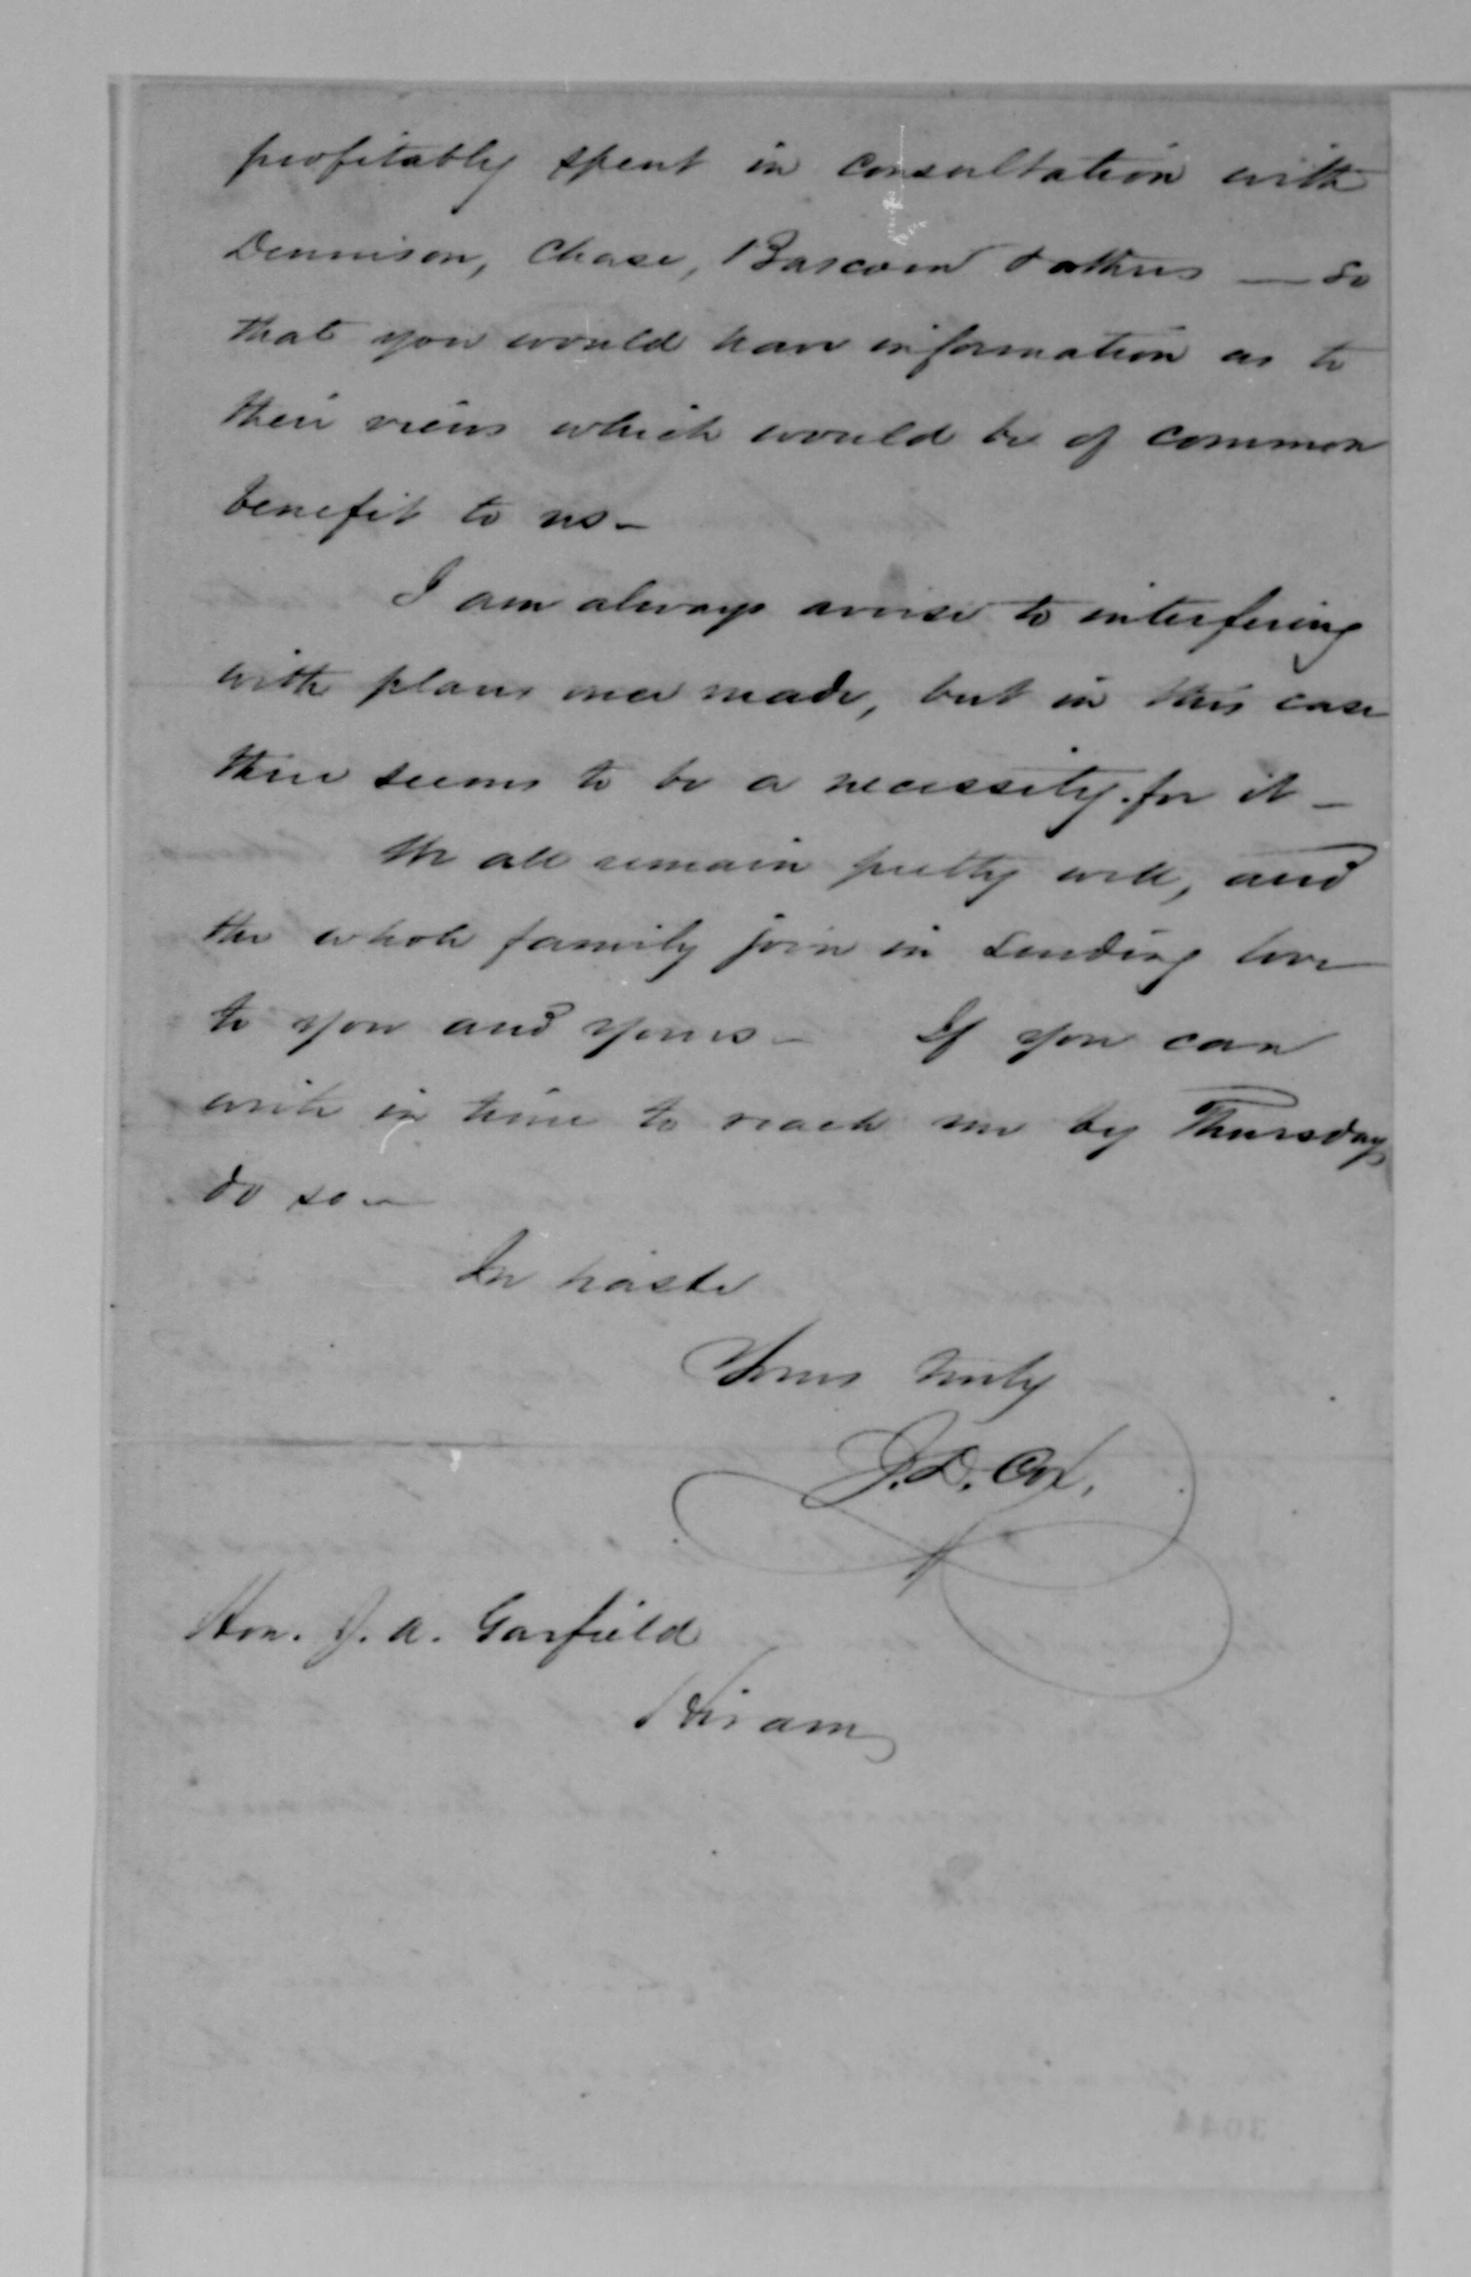 profitably spent in consultation with
Dennison, Chase, Bascom & others — so
that you would have information as to
their views which would be of common
benefit to us –
I am always averse to interfering
with plans once made, but in this case
there seems to be a necessity for it –
We all remain pretty well, and
the whole family join in sending love
to you and yours – If you can
write in time to reach me by Thursday,
do so –
In haste
Yours truly
J. D. Cox,
Hon. J. A. Garfield
Hiram